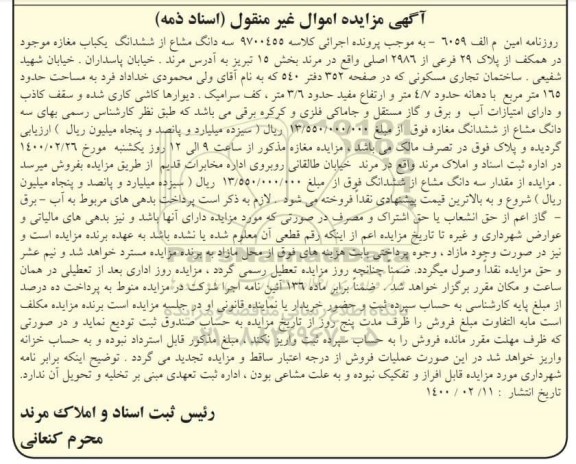 آگهی مزایده اموال غیر منقول (اسناد ذمه)
روزنامه امین م الف ۶۰۵۹ - به موجب پرونده اجرائی کلاسه ۹۷۰۰۴۵۵ سه دانگ مشاع از ششدانگ یکباب مغازه موجود
در همکف از پلاک ۲۹ فرعی از ۲۹۸۶ اصلی واقع در مرند بخش ۱۵ تبریز به آدرس مرند . خیابان پاسداران . خیابان شهید
شفیعی . ساختمان تجاری مسکونی که در صفحه ۳۵۲ دفتر ۵۴۰ که به نام آقای ولی محمودی خداداد فرد به مساحت حدود
۱۶۵ متر مربع با دهانه حدود ۴/۷ متر و ارتفاع مفید حدود ۳/۶ متر ، کف سرامیک . دیوارها کاشی کاری شده و سقف کاذب
و دارای امتیازات آب و برق و گاز مستقل و جاماکی فلزی و کرکره برقی می باشد که طبق نظر کارشناس رسمی بهای سه
دانگ مشاع از ششدانگ مغازه فوق از مبلغ ۱۳/۵۵۰/۰۰۰/۰۰۰ ریال ( سیزده میلیارد و پانصد و پنجاه میلیون ریال ) ارزیابی
گردیده و پلاک فوق در تصرف مالک می باشد . مزایده مغازه مذکور از ساعت ۹ الی ۱۲ روز یکشنبه مورخ ۱۴۰۰/۰۲/۲۶
در اداره ثبت اسناد و املاک مرند واقع در مرند خیابان طالقانی روبروی اداره مخابرات قدیم از طریق مزایده بفروش میرسد
. مزایده از مقدار سه دانگ مشاع از ششدانگ فوق از مبلغ ۱۳/۵۵۰/۰۰۰/۰۰۰ ریال ( سیزده میلیارد و پانصد و پنجاه میلیون
ریال ) شروع و به بالاترین قیمت پیشنهادی نقدا فروخته می شود . لازم به ذکر است پرداخت بدهی های مربوط به آب – برق
– گاز اعم از حق انشعاب یا حق اشتراک و مصرف در صورتی که مورد مزایده دارای آنها باشد و نیز بدهی های مالیاتی و
عوارض شهرداری و غیره تا تاریخ مزایده اعم از اینکه رقم قطعی آن معلوم شده یا نشده باشد به عهده برنده مزایده است و
نیز در صورت وجود مازاد ، وجوه پرداختی بابت هزینه های فوق از محل مازاد به برنده مزایده مسترد خواهد شد و نیم عشر
و حق مزایده نقدا وصول میگردد. ضمنا چنانچه روز مزایده تعطیل رسمی گردد ، مزایده روز اداری بعد از تعطیلی در همان
ساعت و مکان مقرر برگزار خواهد شد . ضمنا برابر ماده ۱۳۶ آئین نامه اجرا شرکت در مزایده منوط به پرداخت ده درصد
از مبلغ پایه کارشناسی به حساب سپرده ثبت و حضور خریدار یا نماینده قانونی او در جلسه مزایده است برنده مزایده مکلف
است مابه التفاوت مبلغ فروش را ظرف مدت پنج روز از تاریخ مزایده به حساب صندوق ثبت تودیع نماید و در صورتی
که ظرف مهلت مقرر مانده فروش را به حساب سپرده ثبت واریز نکند ، مبلغ مذکور قابل استرداد نبوده و به حساب خزانه
واریز خواهد شد در این صورت عملیات فروش از درجه اعتبار ساقط و مزایده تجدید می گردد . توضیح اینکه برابر نامه
شهرداری مورد مزایده قابل افراز و تفکیک نبوده و به علت مشاعی بودن ، اداره ثبت تعهدی مبنی بر تخلیه و تحویل آن ندارد.
تاریخ انتشار : ۱۱ / ۰۲ / ۱۴۰۰
رئیس ثبت اسناد و املاک مرند
محرم کنعانی